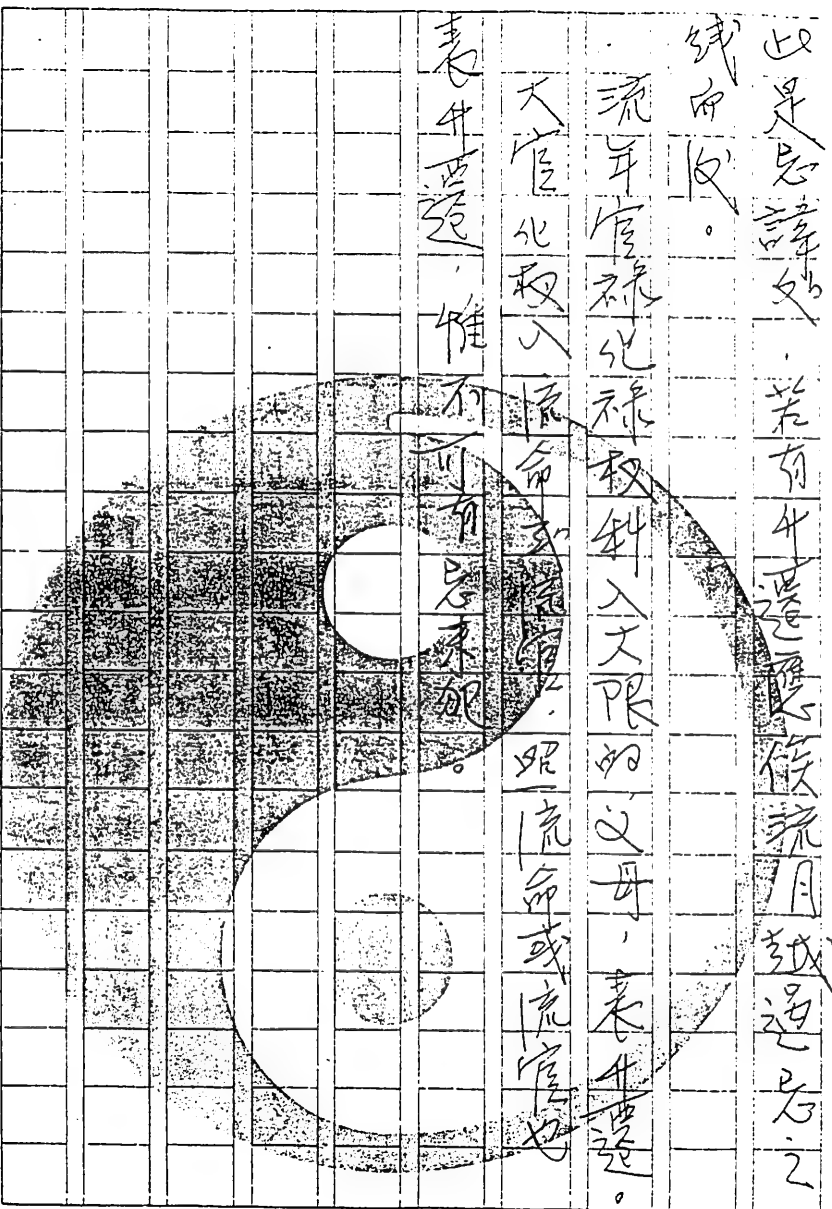 此是忌諱处，若有升遷應俟流月越過忌之
线而後。
流年官禄化禄权科入大限的父母，表升遷。
大官化权入流命或流官，照流命或流官也
表升遷，惟不可有忌来犯。